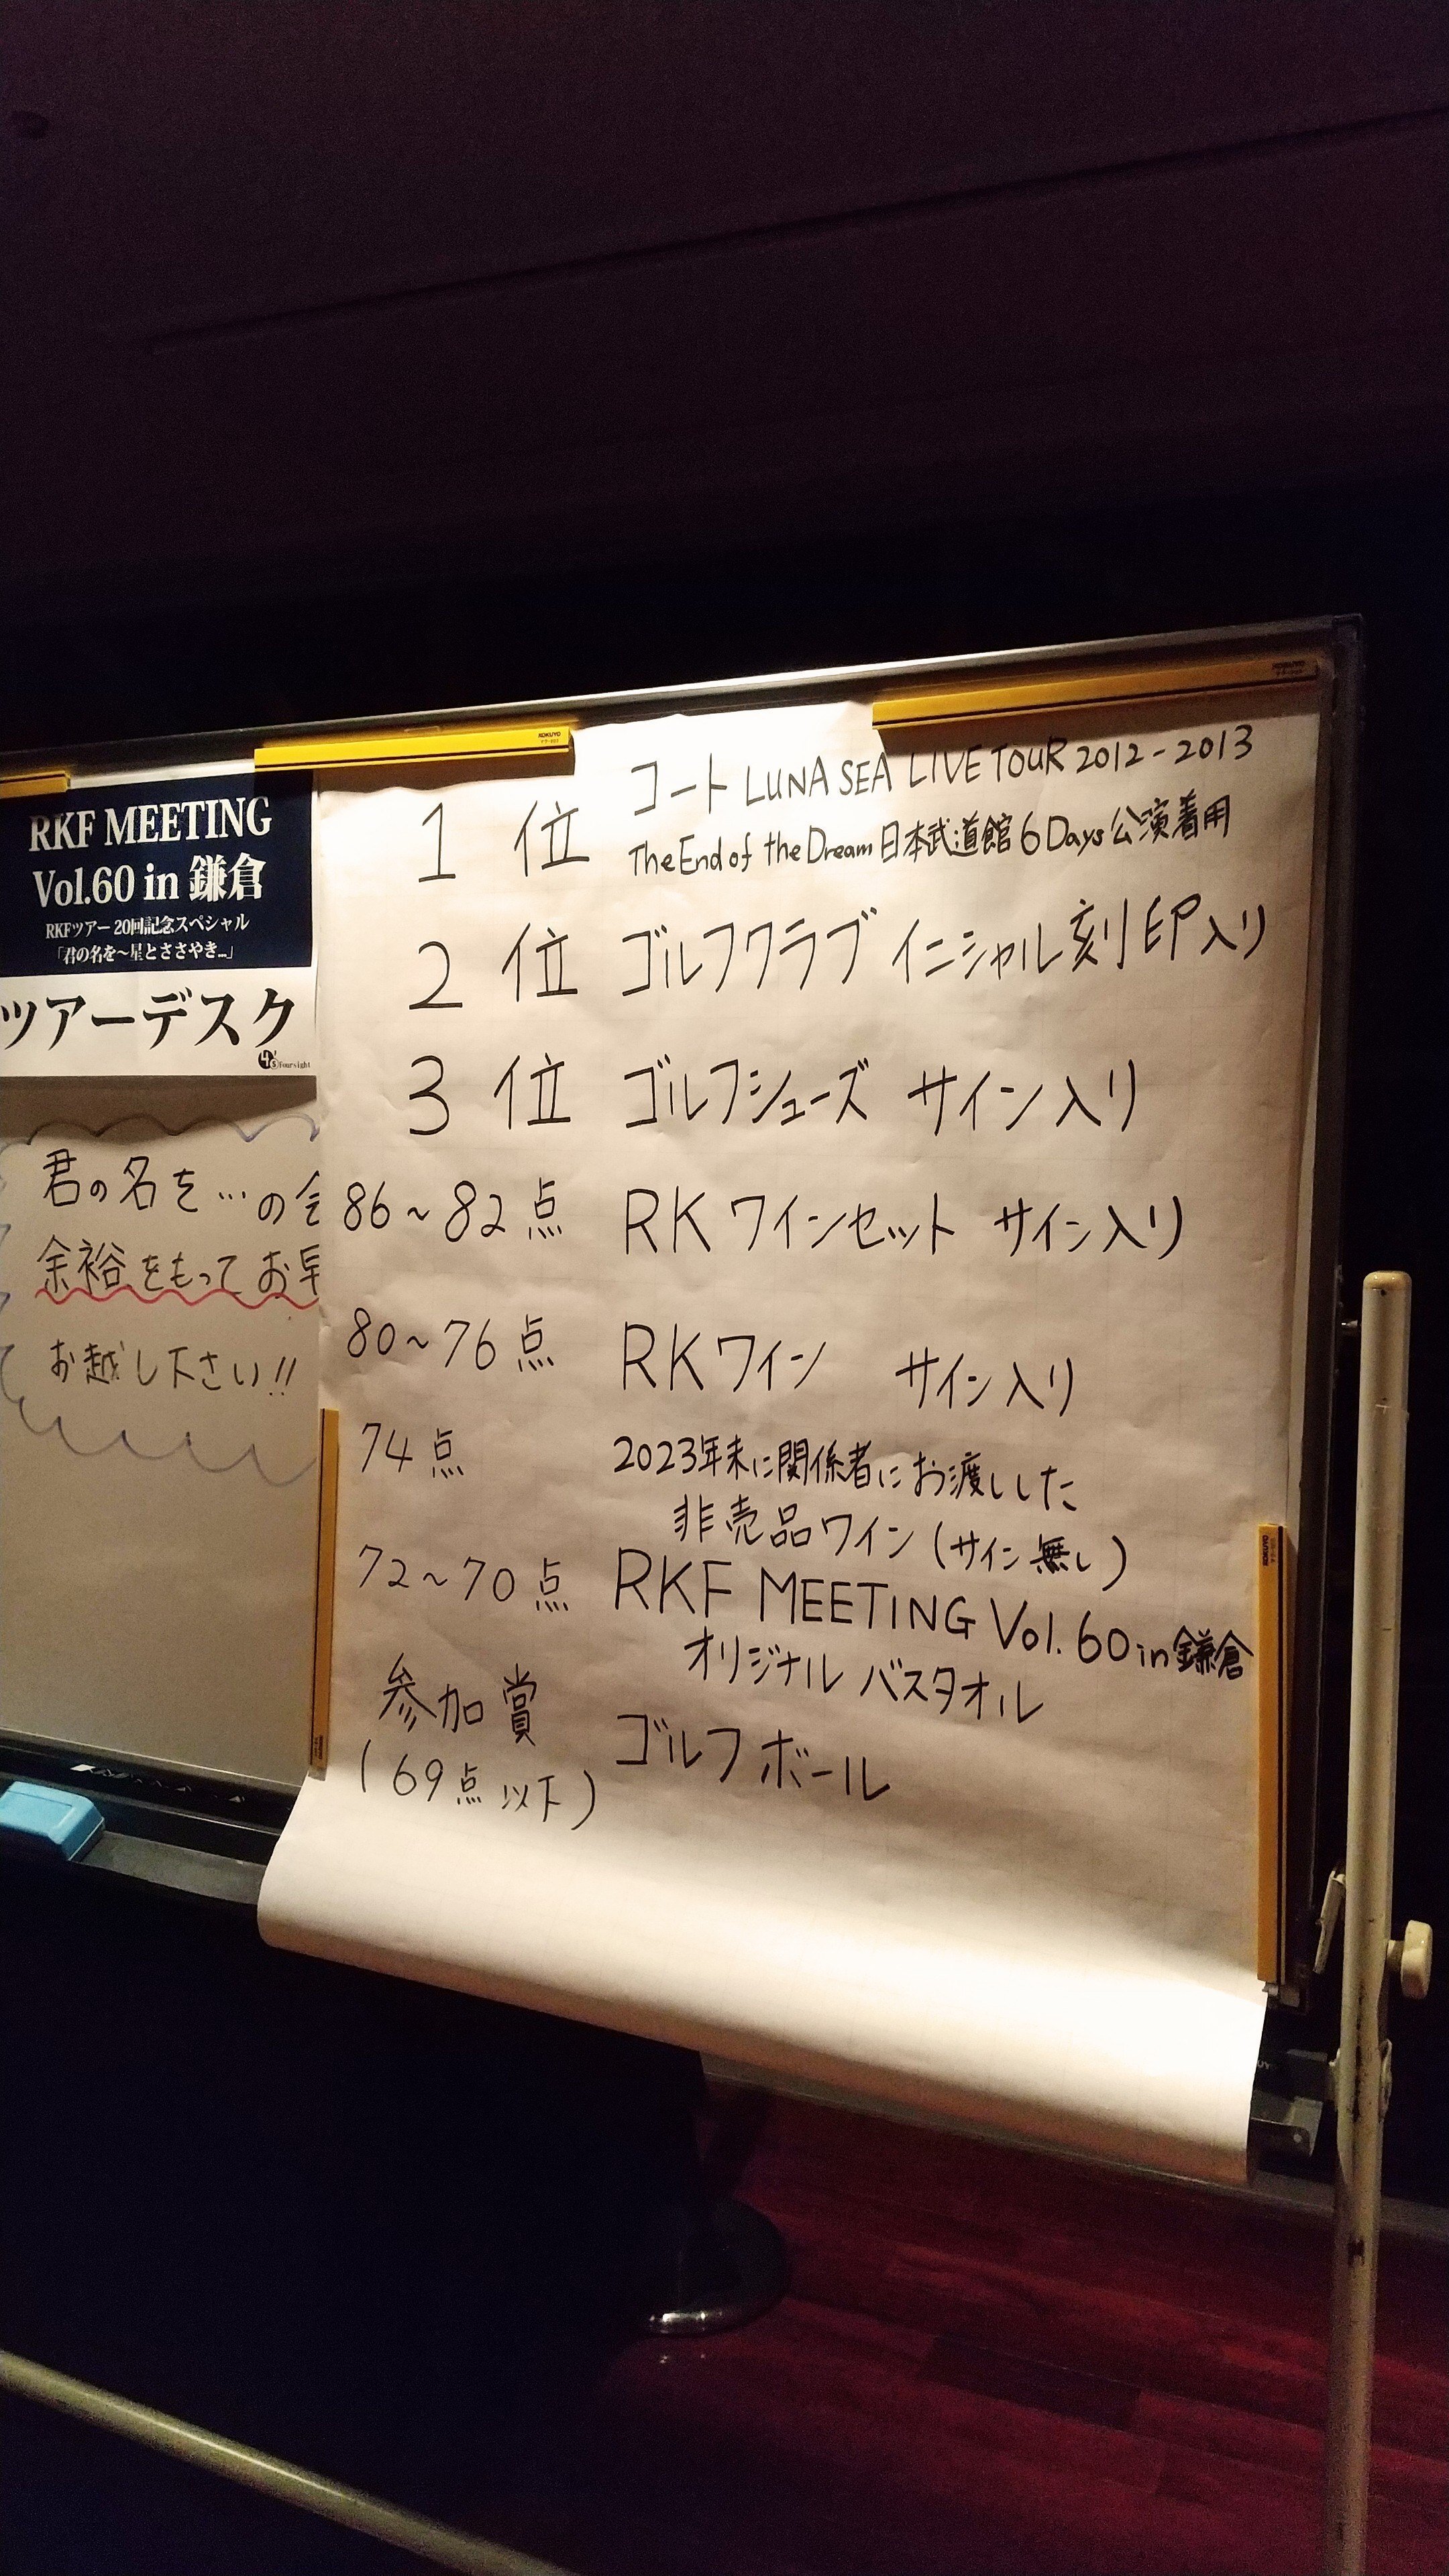 RKF MEETING
Vol.60 in 鎌倉
RKFツアー 20回記念スペシャル
「君の名を～星とささやき...」
ツアーデスク
Foursight
君の名を…の
余裕をもってお早
お越し下さい!!
KOKUYO
KOKUYO
1位 コート LUNA SEA LIVE TOUR 2012-2013
The End of the Dream 日本武道館 6Days 公演着用
2位 ゴルフクラブ イニシャル刻印入り
3位 ゴルフシューズ サイン入り
86～82点 RKワインセット サイン入り
80～76点 RKワイン サイン入り
74点 2023年末に関係者にお渡しした
非売品ワイン(サイン無し)
72～70点 RKF MEETING Vol.60 in 鎌倉
オリジナル バスタオル
参加賞 ゴルフボール
(69点以下)
KOKUYO